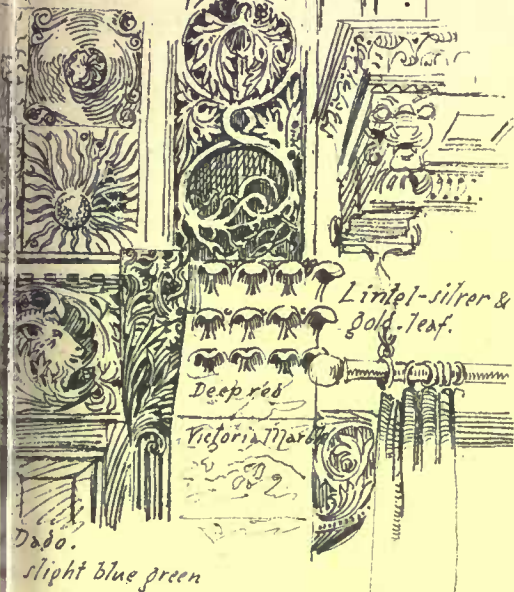 Lintel-silver &
gold-leaf.
Deep red
Victoria Marble
Dado.
slight blue green